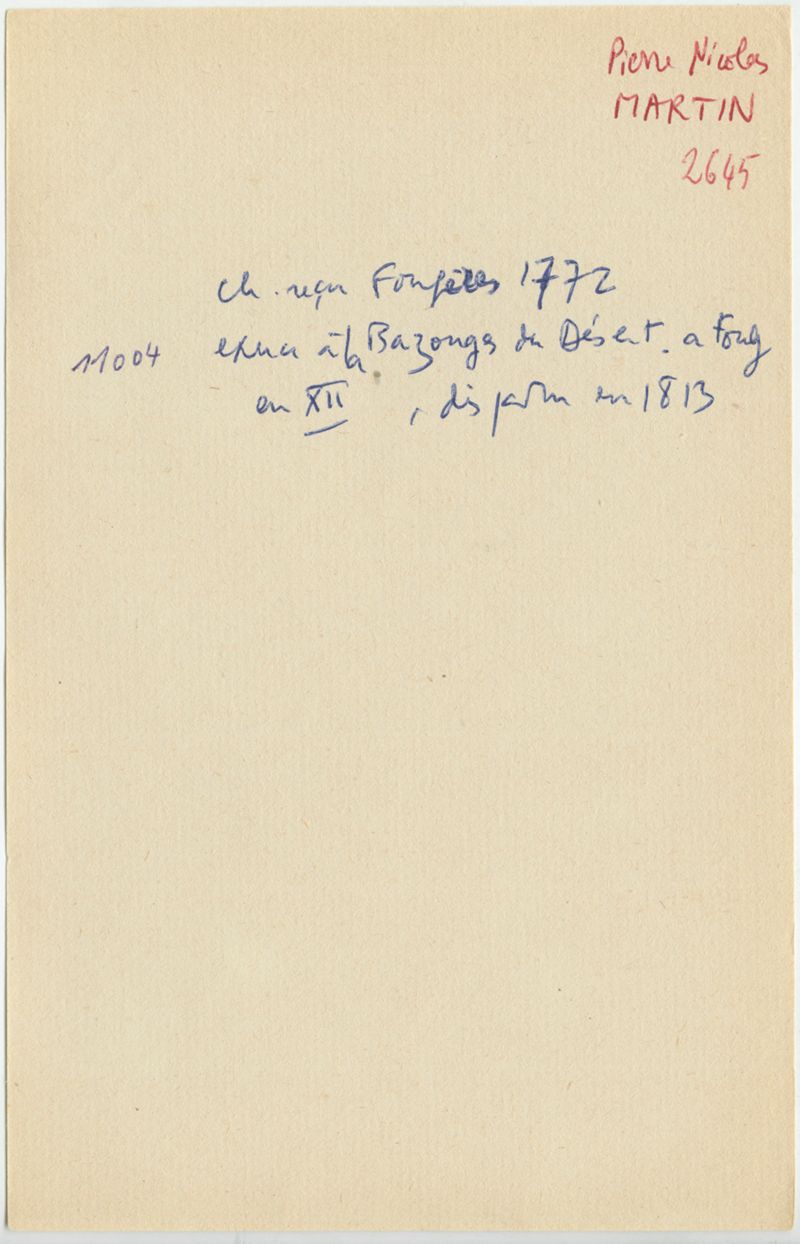 Pierre Nicolas
MARTIN
2645
ch. reçu Fougères 1772
11004 exerce à la Bazouges du Désert. a Foug
en XII , disparu en 1813